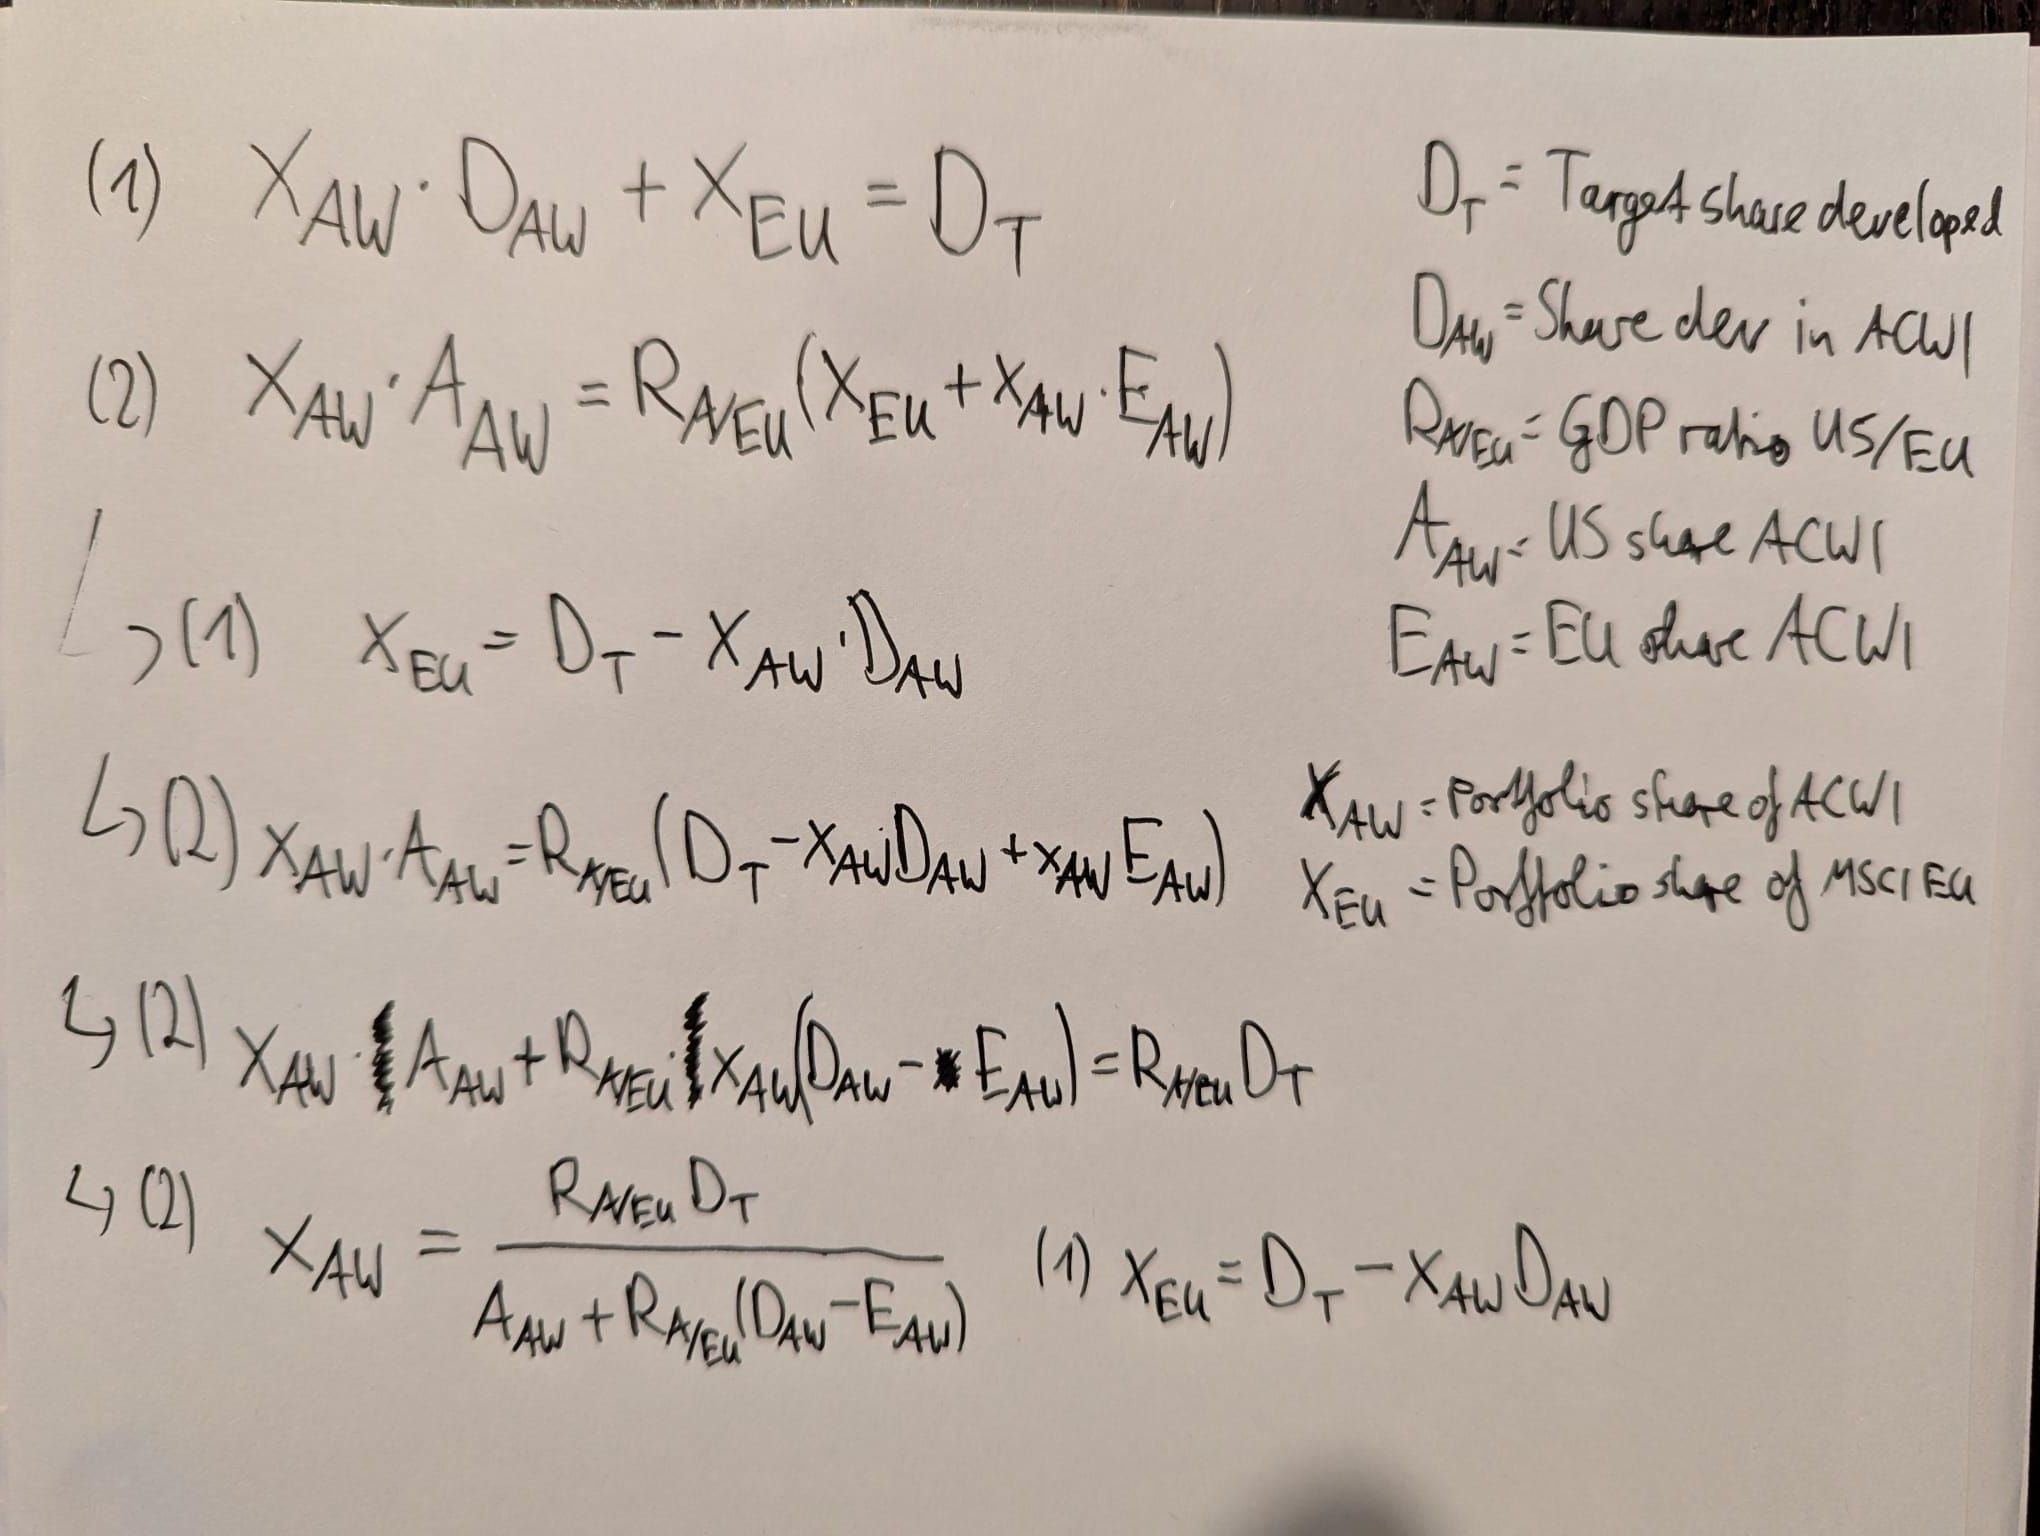 (1) X_AW · D_AW + X_EU = D_T
(2) X_AW · A_AW = R_A/EU (X_EU + X_AW · E_AW)
↳ (1) X_EU = D_T - X_AW · D_AW
↳ (2) X_AW · A_AW = R_A/EU (D_T - X_AW D_AW + X_AW E_AW)
↳ (2) X_AW · A_AW + R_A/EU · X_AW (D_AW - E_AW) = R_A/EU D_T
↳ (2) X_AW = R_A/EU D_T / A_AW + R_A/EU (D_AW - E_AW)
(1) X_EU = D_T - X_AW D_AW
D_T = Target share developed
D_AW = Share dev in ACWI
R_A/EU = GDP ratio US/EU
A_AW = US share ACWI
E_AW = EU share ACWI
X_AW = Portfolio share of ACWI
X_EU = Portfolio share of MSCI EU